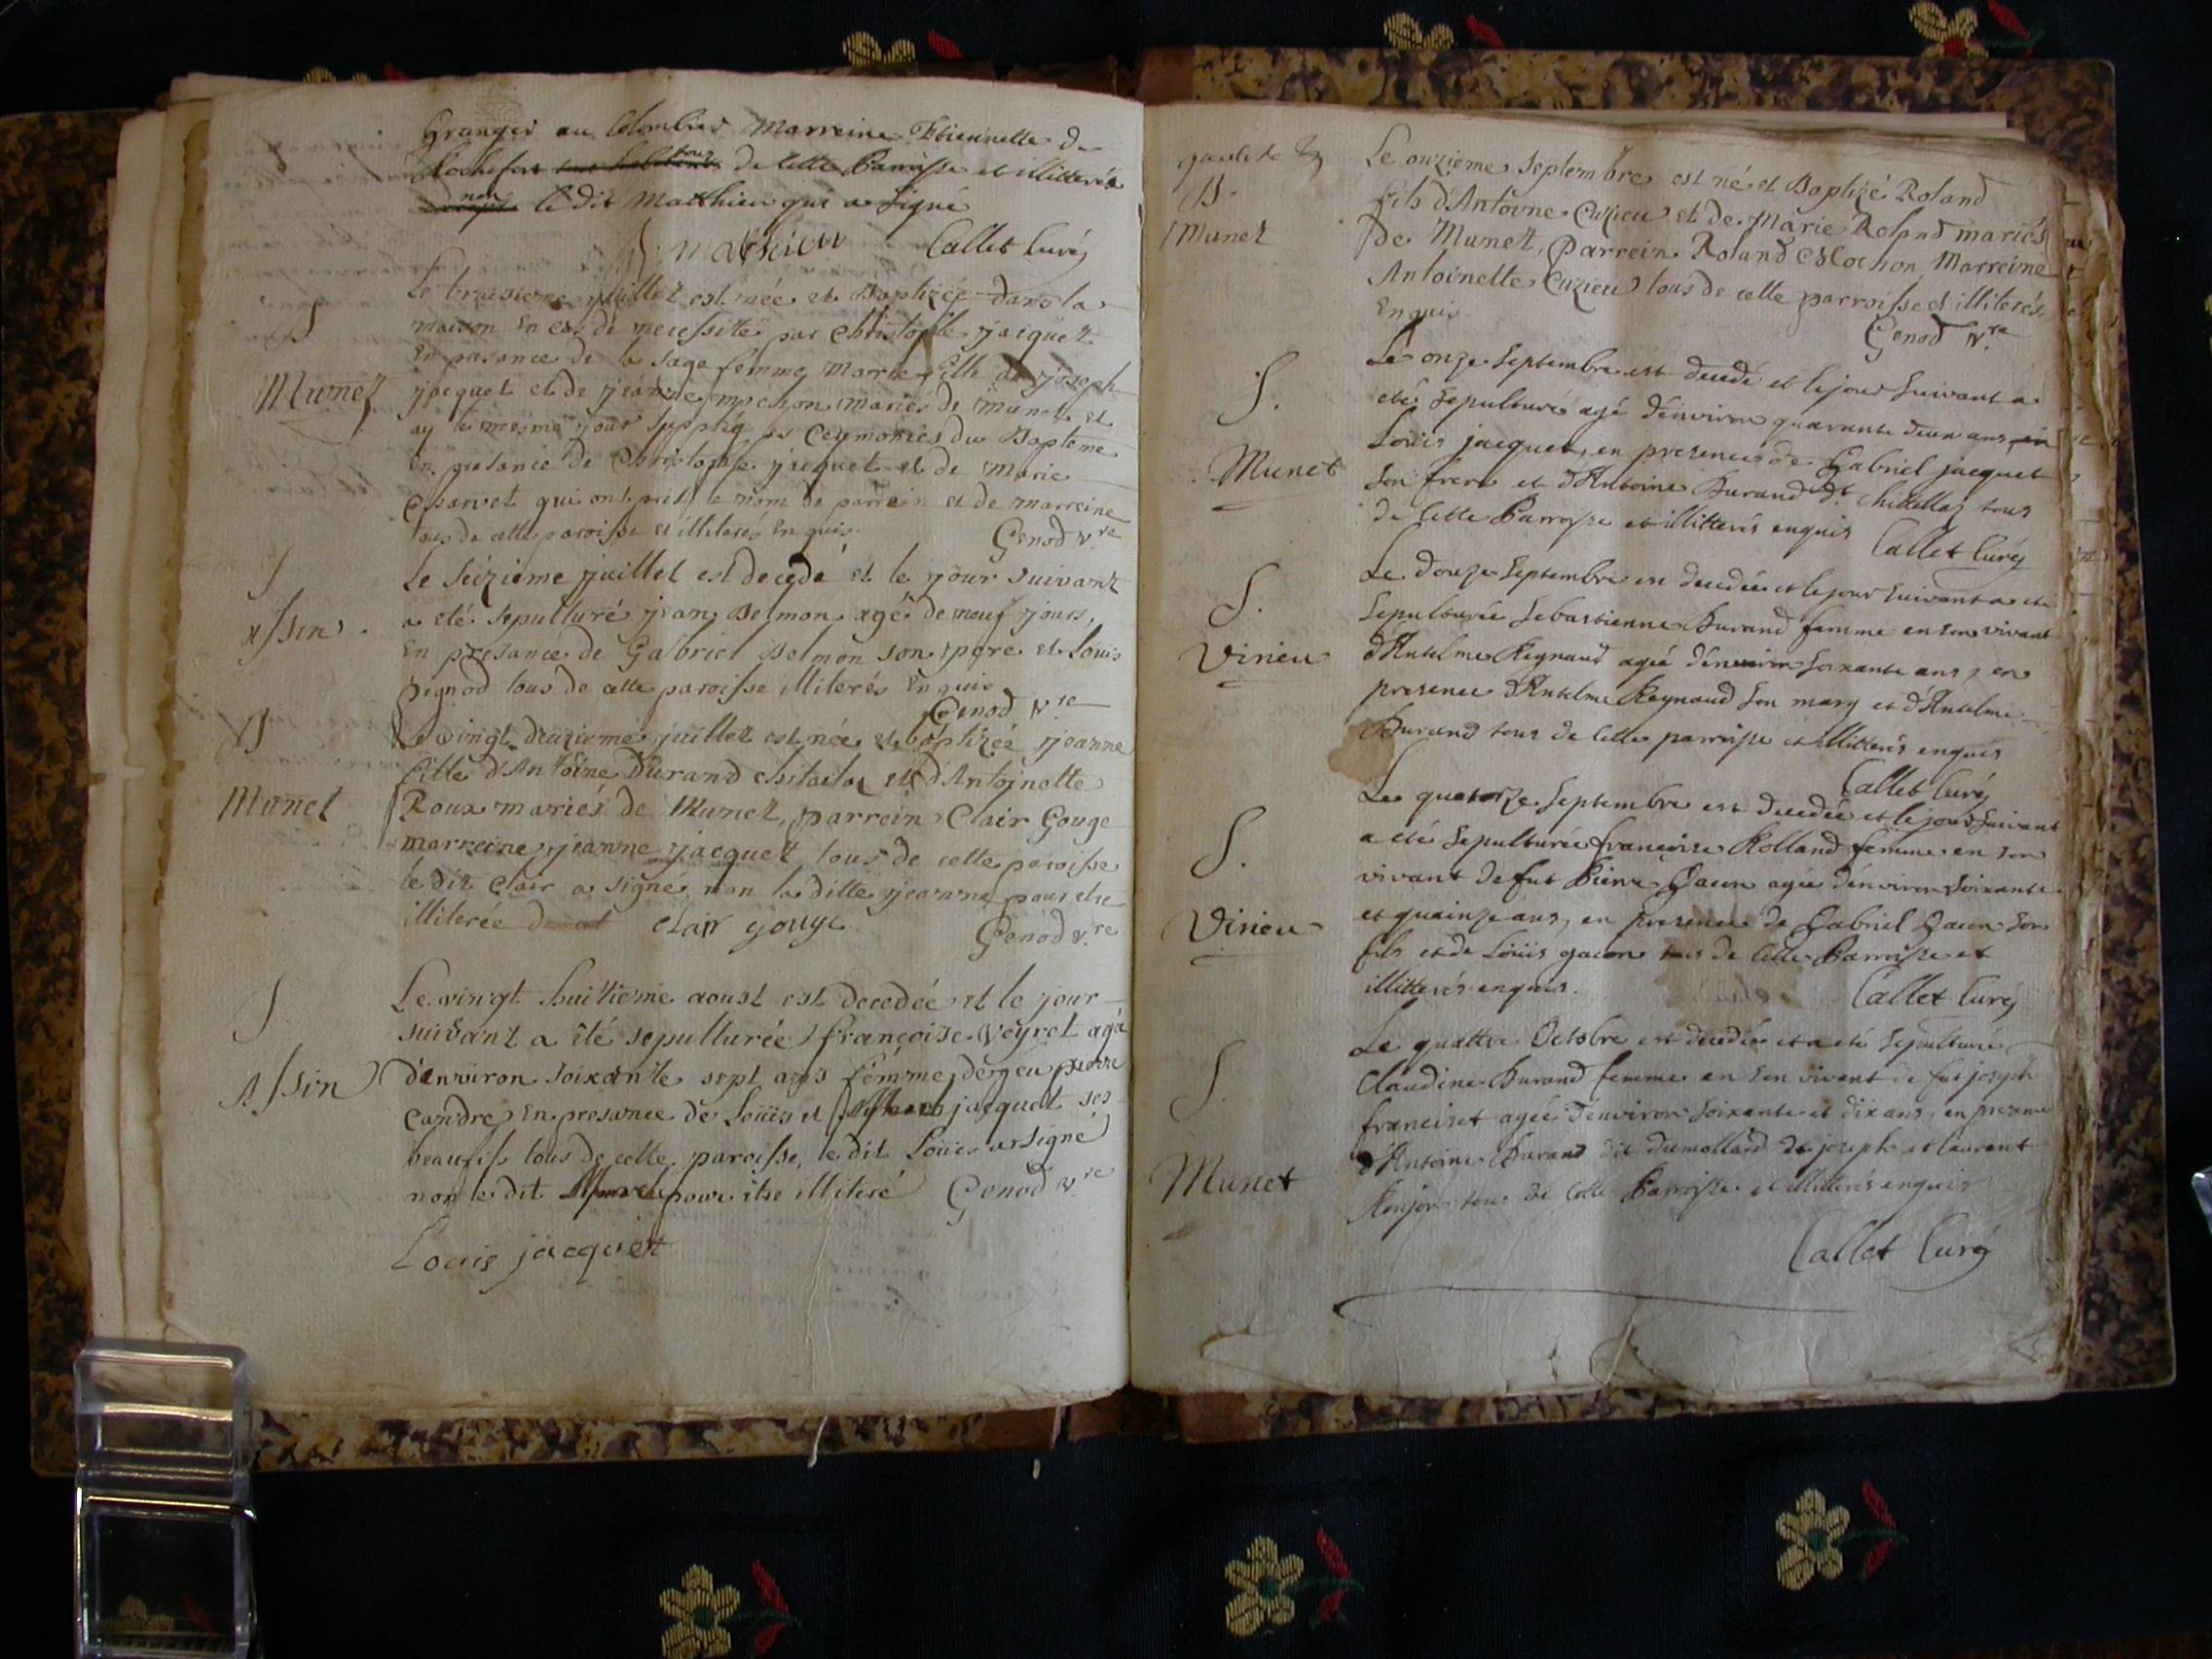 Granger au Colombier Marreine Etiennette de
Rochefort tous de cette Parroisse et illitterés
non le dit Matthieu qui a signé
Mathieu Callet Curé
Le troisieme juillet est née et Baptizée dans la
S
maison En cas de necessité par Christophle jacquet
En presance de la sage femme, Marie fille de joseph
Munet
jacquet et de jeanne mochon mariés de Munet, et
ay le mesme jour supplée les Ceremonies du Bapteme
En presance de Christophle jacquet et de Marie
Charvet qui ont pris le nom de parrein et de marreine
tous de cette paroisse et illiterés Enquis.
Genod v.re
S
Le seizieme juillet est decedé et le jour suivant
Assin
a eté sepulturé jean Belmon agé de neuf jours,
En presance de Gabriel Belmon son pere et Louis
Pignod tous de cette paroisse illiterés Enquis
Genod v.re
B
Le vingt deuzieme juillet est née et baptizée jeanne
fille d'Antoine Durand et d'Antoinette
Munet
Roux mariés de Munet, parrein Clair Gouge
marreine jeanne jacquet tous de cette paroisse
le dit Clair a signé non la ditte jeanne pour etre
illiterée clair gouge
Genod v.re
S
Le vingt huitieme aoust est decedée et le jour
suivant a été sepulturée françoise Veyret agée
Assin
d'environ soixante sept ans femme de feu pierre
Candre, En presance de Loüis et jacquet ses
beaufils tous de cette paroisse, le dit Loüis a signé
non le dit pour etre illiteré Genod v.re
Louis jacquet
B.
Le onzieme Septembre est né et Baptizé Roland
fils d'Antoine Cuzieu et de Marie Roland mariés
Munet
de Munet, Parrein Roland Mochon, Marreine
Antoinette Cuzieu tous de cette parroisse et illiterés
Enquis
Genod v.re
Le onze Septembre est decedé et le jour suivant a
S.
eté sepulturé agé d'environ quarante deux ans
Loüis jacquet, en presence de Gabriel jacquet
Munet
son frere et d'Antoine Durand dt. tous
de cette Parroisse et illitterés enquis
Callet Curé
Le douze Septembre est decedée et le jour suivant a ete
S.
sepulturée Sebastienne Durand femme en son vivant
Virieu
d'Antelme Reynaud agée d'environ soixante ans, en
presence d'Antelme Reynaud son mary et d'Antelme
Durand tous de cette parroisse et illitterés enquis
Callet Curé
Le quatorze Septembre est decedée et le jour suivant
S.
a eté sepulturée françoise Rolland femme en son
vivant de fut Pierre Gacon agée d'environ soixante
Virieu
et quainze ans, en presence de Gabriel Gacon son
fils et de Loüis gacon tous de cette Parroisse et
illitterés enquis.
Callet Curé
Le quattre Octobre est decedée et a eté sepulturée
S.
Claudine Durand femme en son vivant de fut joseph
franciset agée d'environ soixante et dix ans, en presence
Munet
d'Antoine Durand dit dumollard de joseph et laurent
tous de cette Parroisse et illitterés enquis
Callet Curé